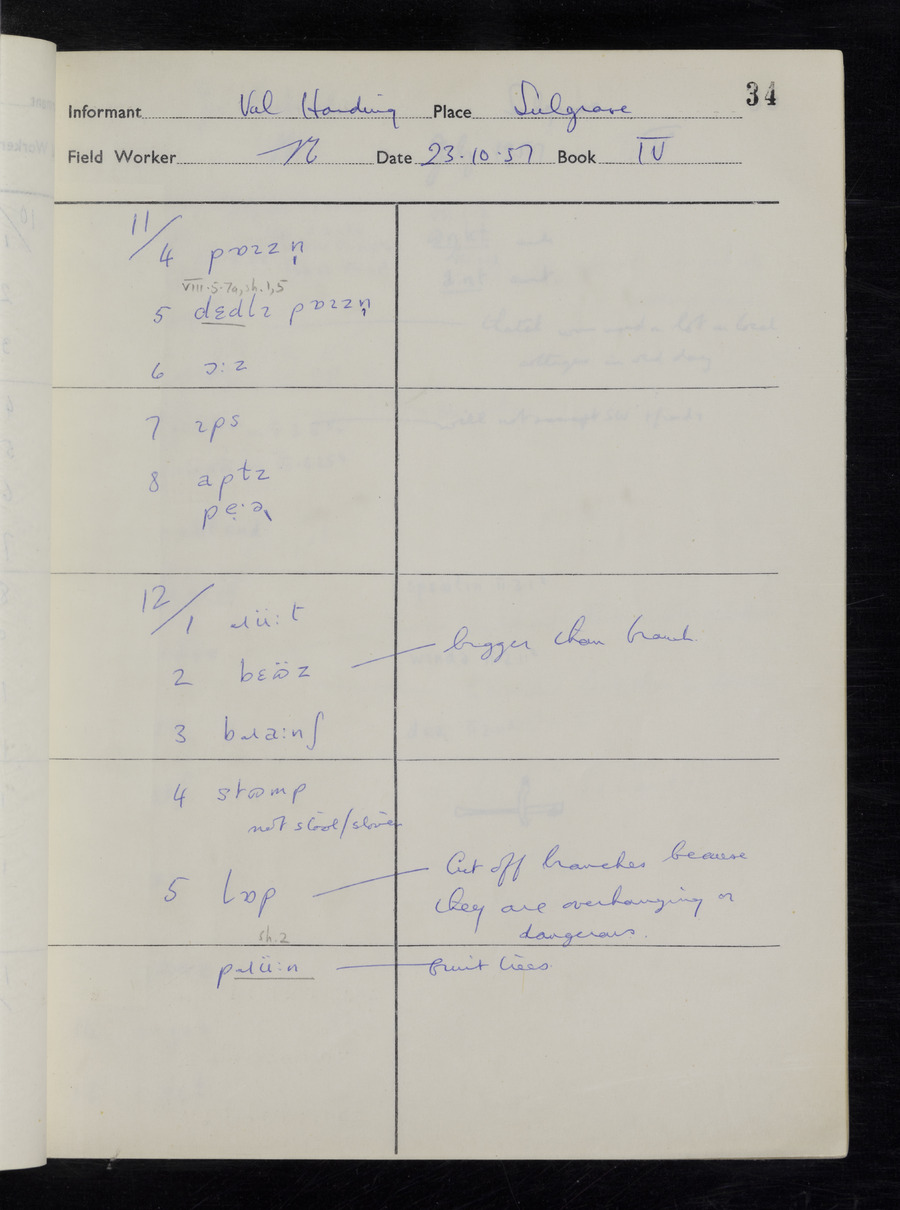 34
Informant Val Harding Place Sulgrave
Field Worker N Date 23.10.57 Book IV
11/4 pɒɪzn̩
VIII.5.7a, sh.1,5
5 dɛdlɪ pɒɪzn̩
6 ɔ:z
7 ɪps
8 aptz
12/1 ɹü:t
2 bɛöz bigger than branch.
3 bɹa:nʃ
4 stɷmp
not stool/stoven
5 lɒp Cut off branches because
they are overhanging or
dangerous.
sh.2
pɹü:n fruit trees.